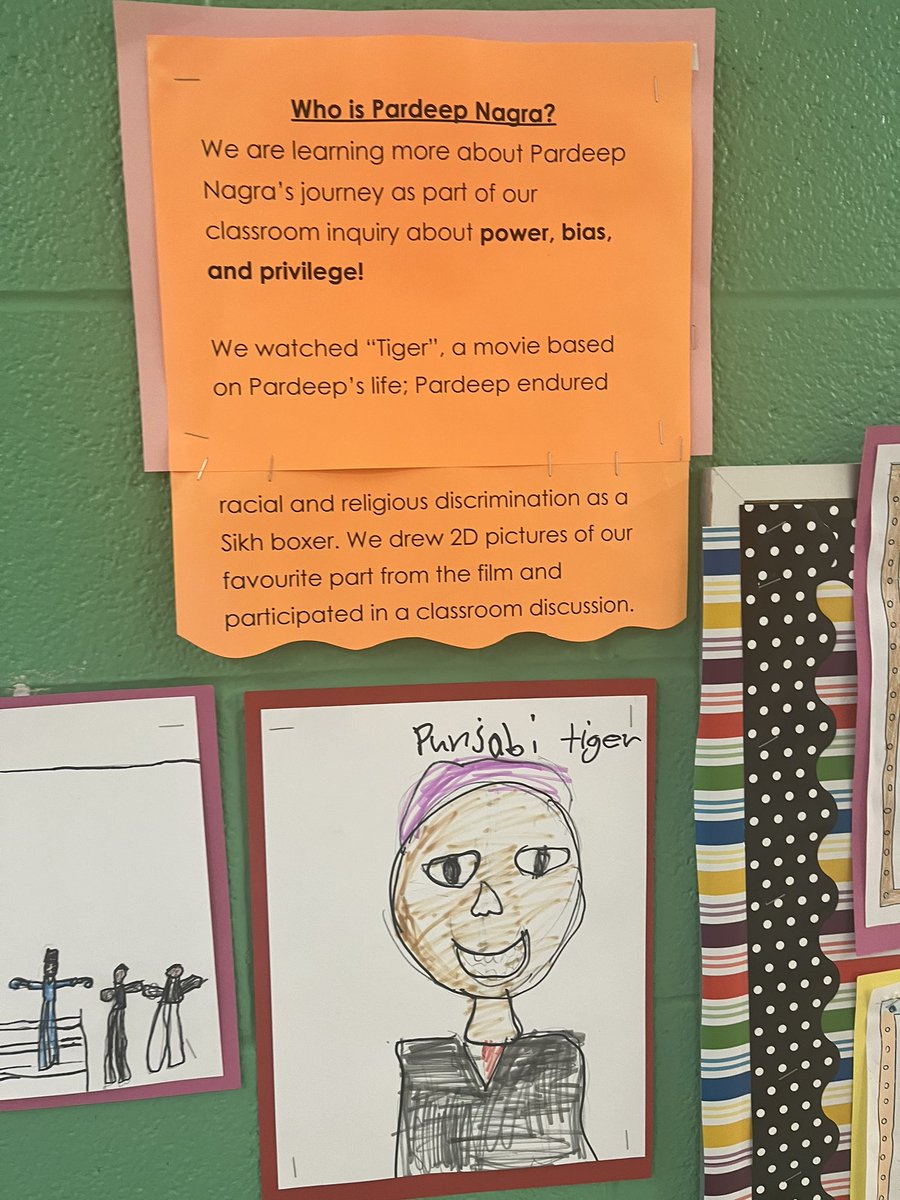 Who is Pardeep Nagra?
We are learning more about Pardeep
Nagra's journey as part of our
classroom inquiry about power, bias,
and privilege!
We watched “Tiger”, a movie based
on Pardeep's life; Pardeep endured
racial and religious discrimination as a
Sikh boxer. We drew 2D pictures of our
favourite part from the film and
participated in a classroom discussion.
Punjabi tiger